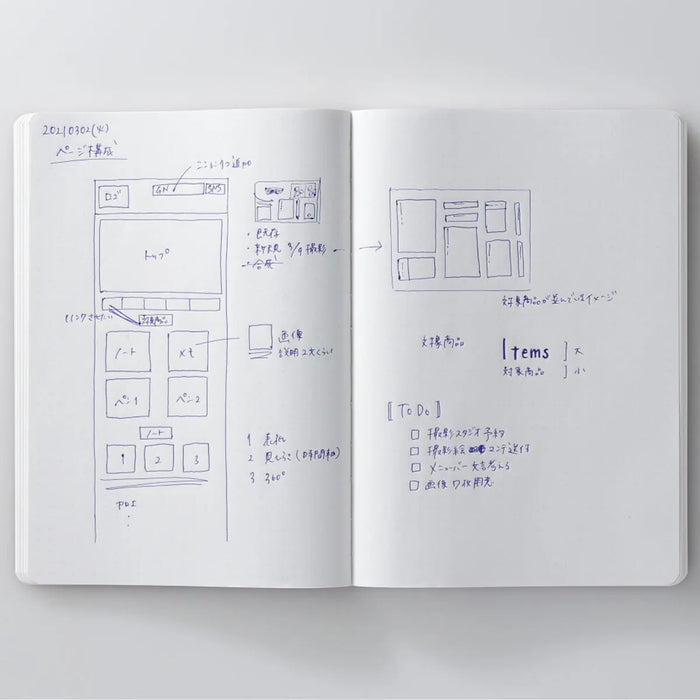 20210302(火)
ページ構成
ここに1つ追加
ロゴ
GN
SNS
トップ
・既存
・新規 3/9 撮影
・合成
リンクさせたい
対象商品
ノート
メモ
ペン1
ペン2
画像
説明 2文くらい
ノート
1
2
3
1 表紙
2 見ひらき
3 360°
対象商品が並んでいるイメージ
対象商品
Items ] 大
対象商品 ] 小
【ToDo】
□ 撮影スタジオ予約
□ 撮影絵コンテ送付
□ メニューバー文言考える
□ 画像 7枚用意